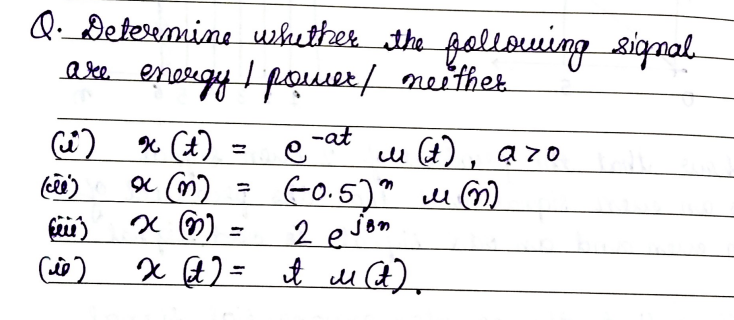 Q. Determine whether the following signal
are energy / power / neither
(i) x(t) = e^-at u(t), a>0
(ii) x(n) = (-0.5)^n u(n)
(iii) x(n) = 2 e^j8n
(iv) x(t) = t u(t).